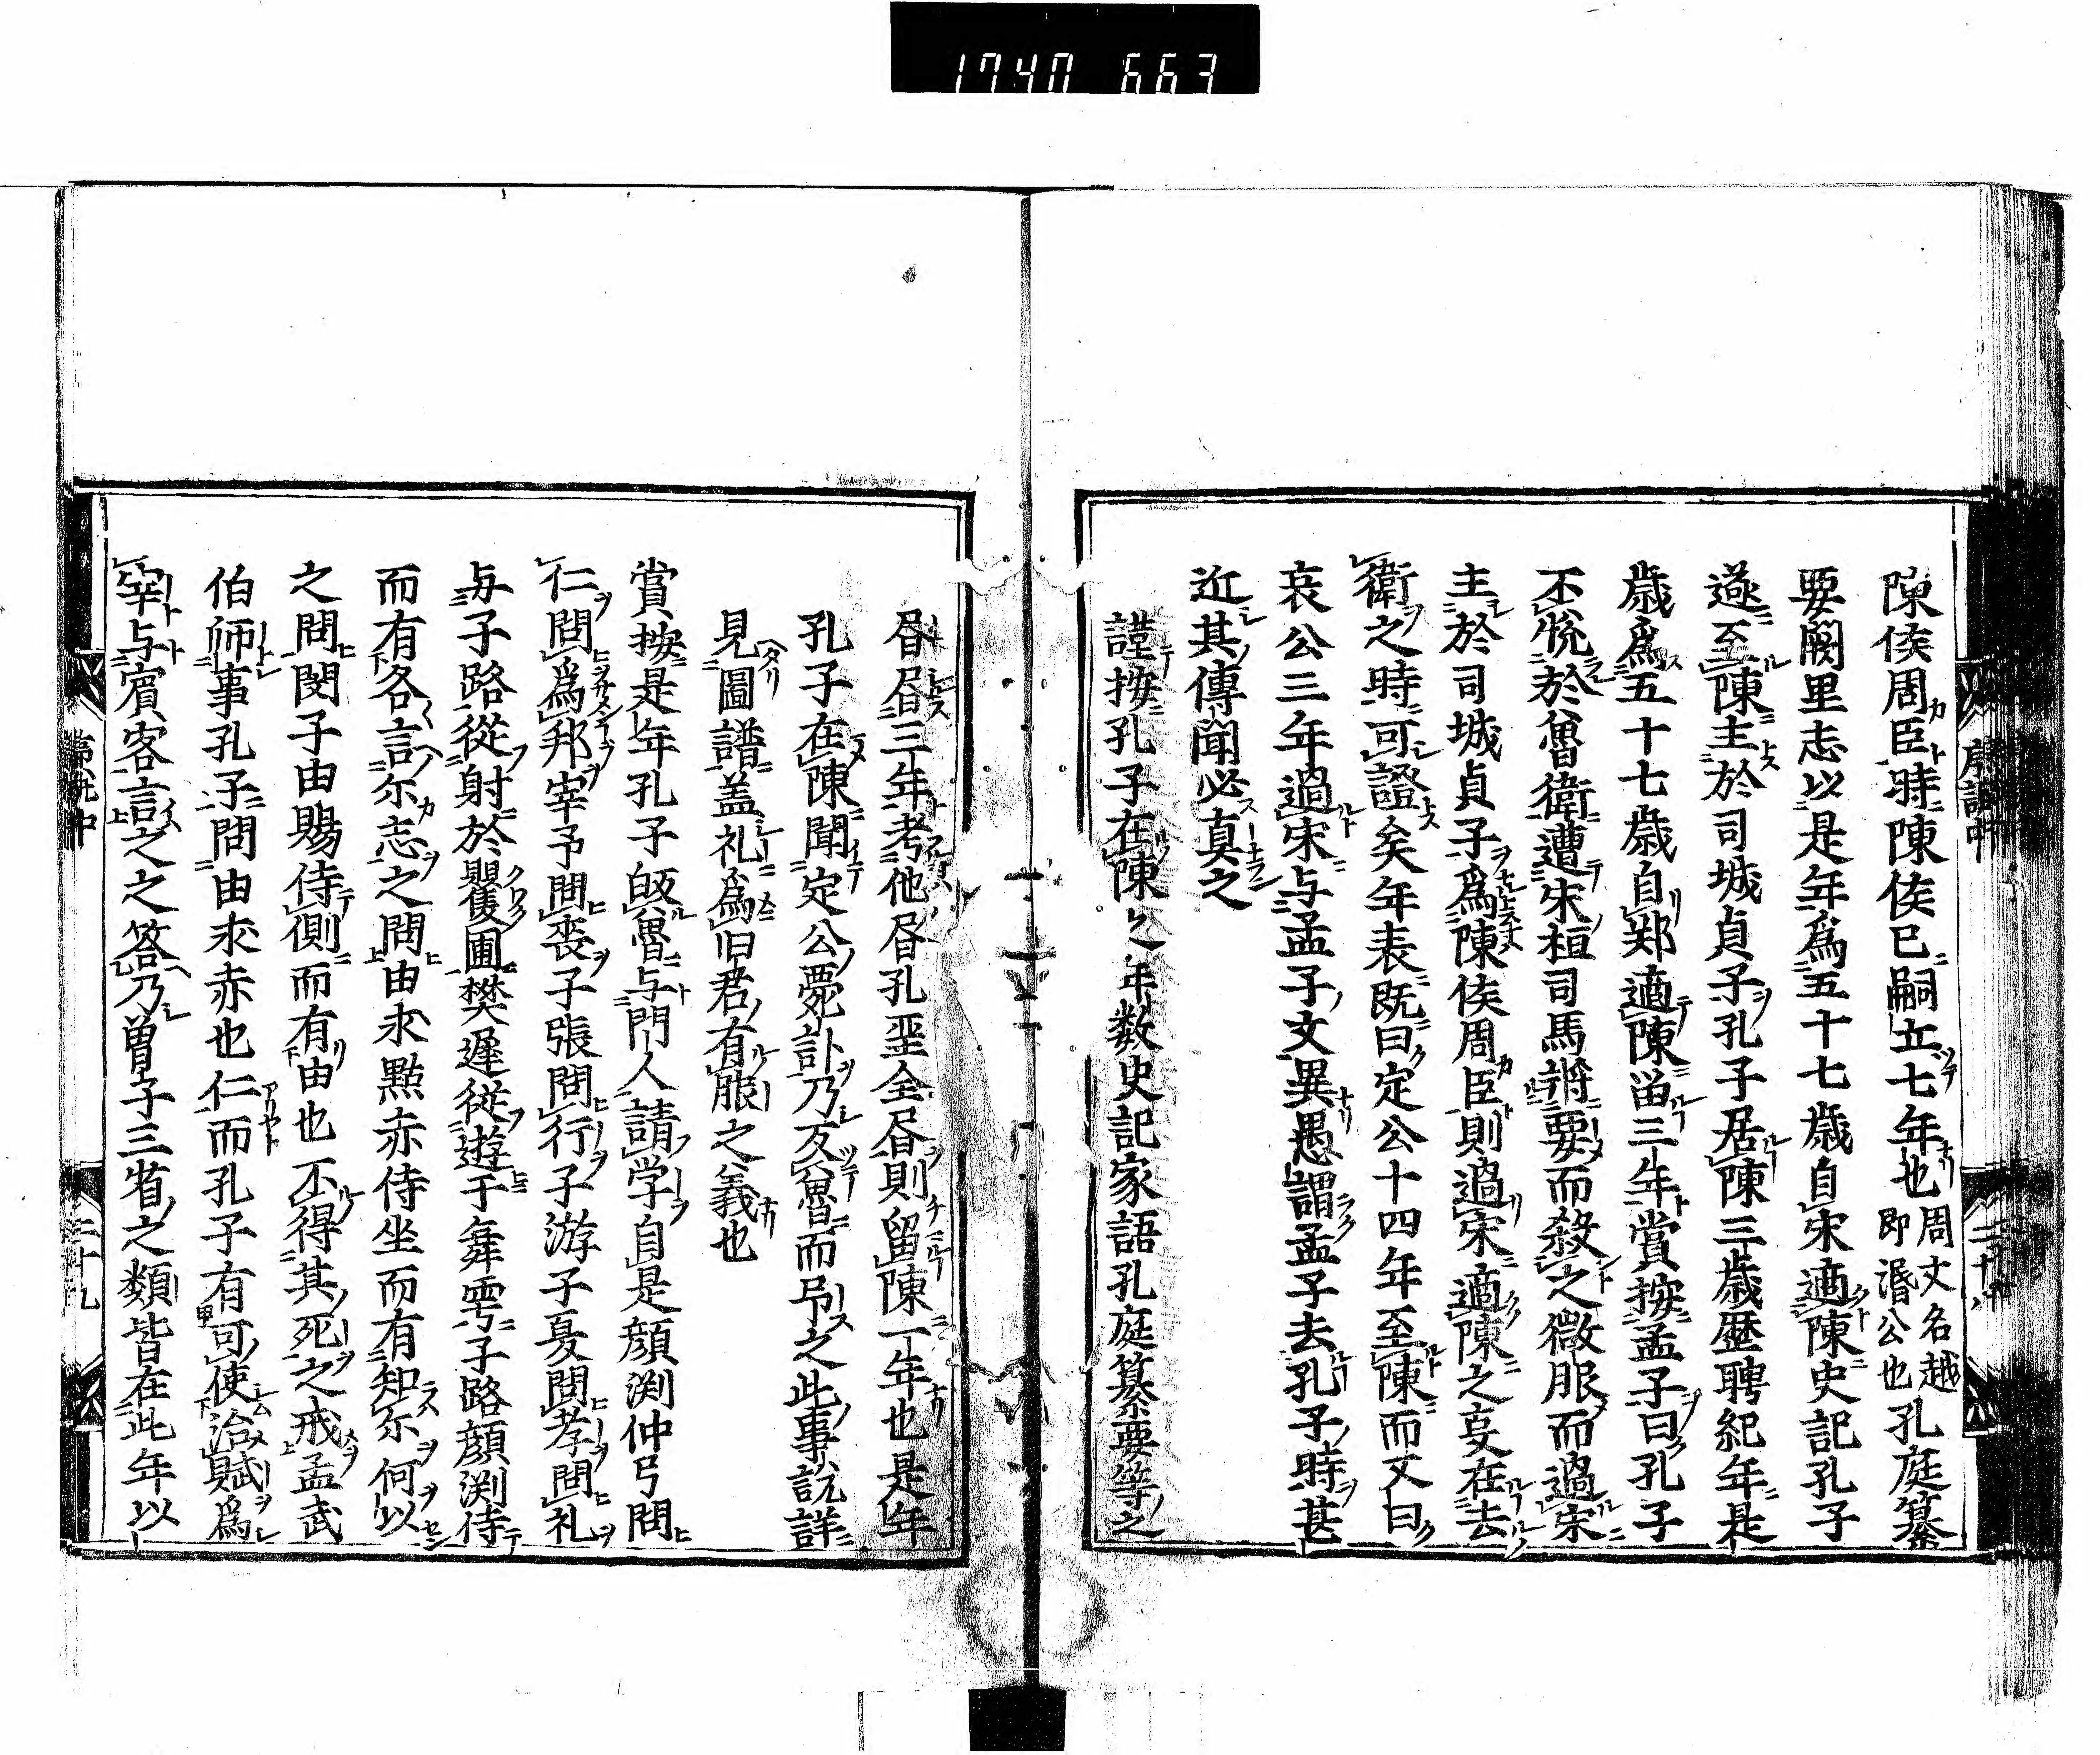 1740 663
陳侯周臣時陳侯已嗣立七年也周文名越即湣公也孔庭纂
要闕里志以是年為五十七歲自宋適陳史記孔子
遂至陳主於司城貞子孔子居陳三歲歷聘紀年是
歲為五十七歲自鄭適陳留三年賞按孟子曰孔子
不悅於魯衛遭宋桓司馬將要而殺之微服而過宋
主於司城貞子為陳侯周臣則過宋適陳之㕝在去
衛之時可證矣年表既曰定公十四年至陳而又曰
哀公三年過宋与孟子文異愚謂孟子去孔子時甚
近其傳聞必真之
謹按孔子在陳之年数史記家語孔庭纂要等之
㫺㫺三年考他㫺孔聖全㫺則留陳一年也是年
孔子在陳聞定公薨訃乃反魯而弔之此事説詳
見圖譜盖礼為旧君有服之義也
賞按是年孔子皈魯与門人請学自是顔渕仲弓問
仁問為邦宰予問喪子張問行子游子夏問孝問礼
与子路從射於矍圃樊遲從遊于舞雩子路顔渕侍
而有各言尔志之問由求點赤侍坐而有知尔何以
之問閔子由賜侍側而有由也不得其死之戒孟武
伯師事孔子問由求赤也仁而孔子有可使治賦為
宰与賓客言之之答乃曽子三省之類皆在此年以
二十九